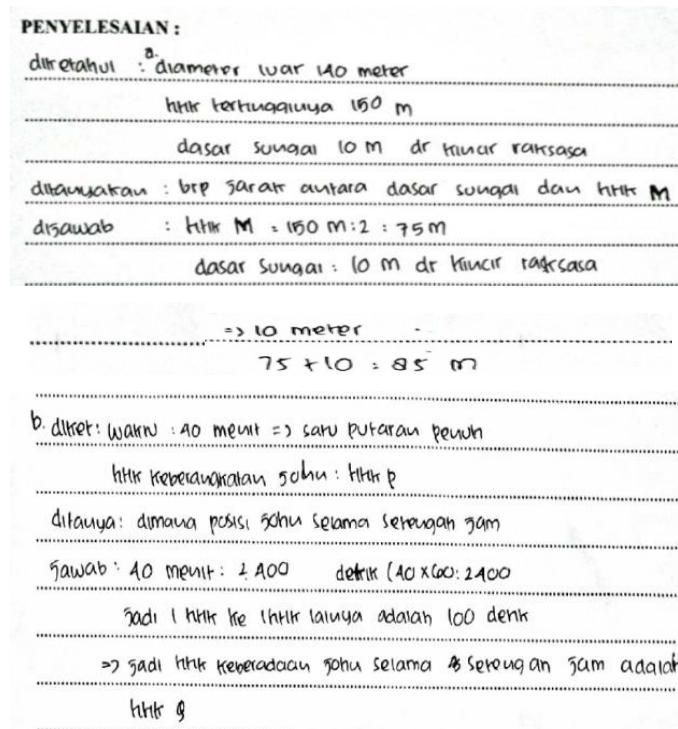 PENYELESAIAN :
diketahui : a. diameter luar 140 meter
titik tertingginya 150 m
dasar sungai 10 m dr kincir raksasa
ditanyakan : brp jarak antara dasar sungai dan titik M
dijawab : titik M = 150 m : 2 = 75 m
dasar sungai : 10 m dr kincir raksasa
=> 10 meter
75 + 10 = 85 m
b. diket : waktu : 40 menit => satu putaran penuh
titik keberangkatan John : titik P
ditanya : dimana posisi John selama setengah jam
Jawab : 40 menit : 2400 detik (40 x 60 : 2400
Jadi 1 titik ke titik lainya adalah 100 detik
=> Jadi titik keberadaan John selama setengan jam adalah
titik